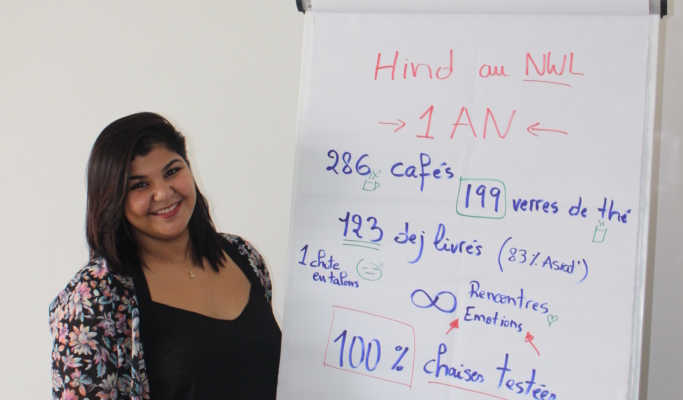 Hind au NWL
→ 1 AN ←
286 cafés
199 verres de thé
123 dej livrés (83% Asiad')
1 chute
en talons
∞ Rencontres
Emotions
100 % chaises testées